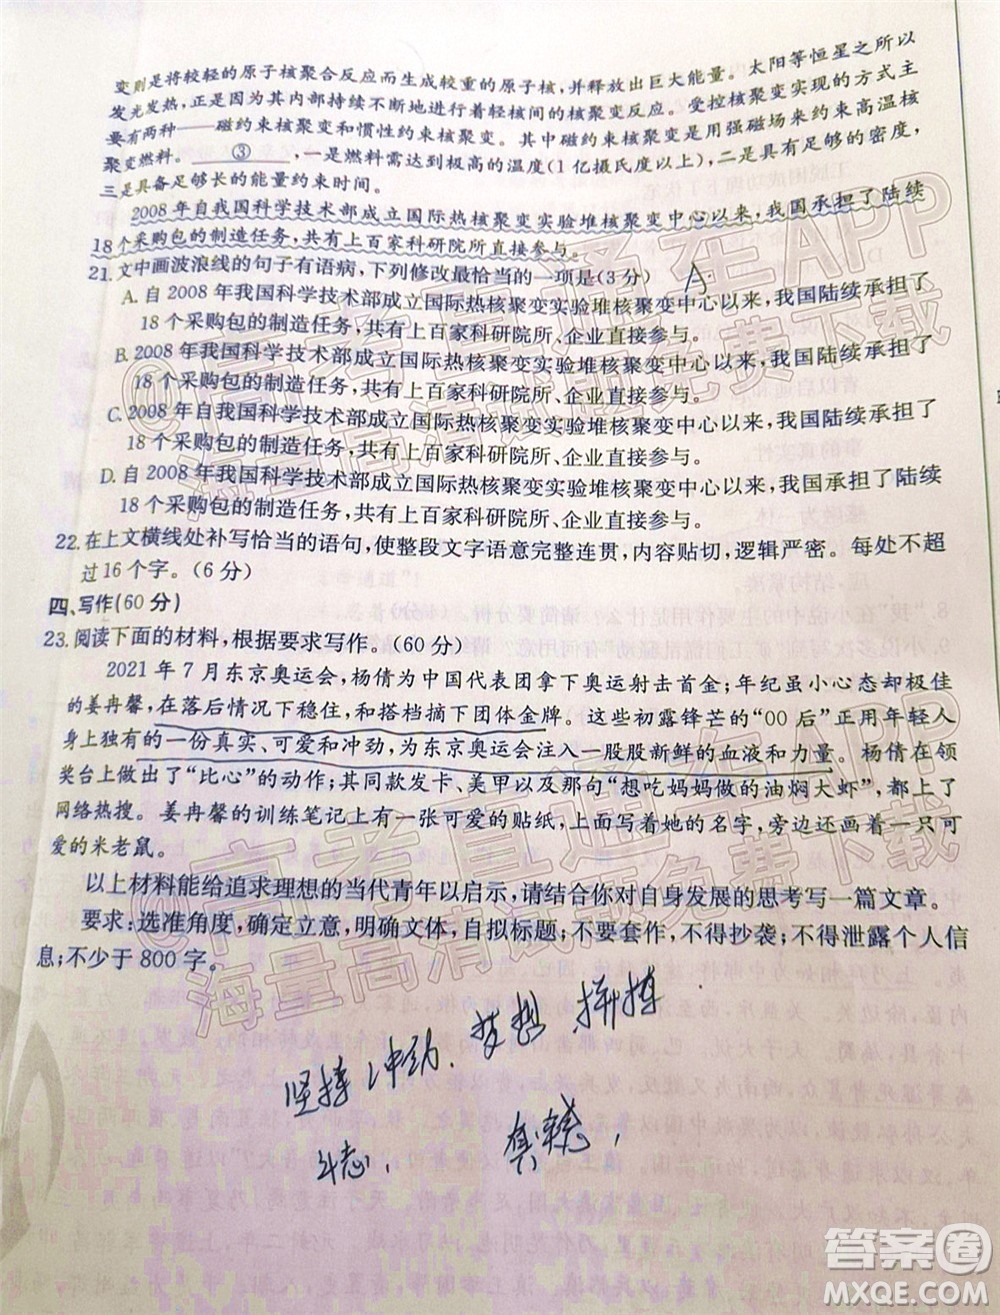 变则是将较轻的原子核聚合反应而生成较重的原子核，并释放出巨大能量。太阳等恒星之所以
发光发热，正是因为其内部持续不断地进行着轻核间的核聚变反应。受控核聚变实现的方式主
要有两种——磁约束核聚变和惯性约束核聚变。其中磁约束核聚变是用强磁场来约束高温核
聚变燃料。③，一是燃料需达到极高的温度(1亿摄氏度以上)，二是具备足够的密度，
三是具备足够长的能量约束时间。
2008年自我国科学技术部成立国际热核聚变实验堆核聚变中心以来，我国承担了陆续
18个采购包的制造任务，共有上百家科研院所直接参与。
21.文中画波浪线的句子有语病，下列修改最恰当的一项是(3分) A.
A.自2008年我国科学技术部成立国际热核聚变实验堆核聚变中心以来，我国陆续承担了
18个采购包的制造任务，共有上百家科研院所、企业直接参与。
B.2008年我国科学技术部成立国际热核聚变实验堆核聚变中心以来，我国陆续承担了
18个采购包的制造任务，共有上百家科研院所、企业直接参与。
C.2008年自我国科学技术部成立国际热核聚变实验堆核聚变中心以来，我国陆续承担了
18个采购包的制造任务，共有上百家科研院所、企业直接参与。
D.自2008年我国科学技术部成立国际热核聚变实验堆核聚变中心以来，我国承担了陆续
18个采购包的制造任务，共有上百家科研院所、企业直接参与。
22.在上文横线处补写恰当的语句，使整段文字语意完整连贯，内容贴切，逻辑严密。每处不超
过16个字。(6分)
四、写作(60分)
23.阅读下面的材料，根据要求写作。(60分)
2021年7月东京奥运会，杨倩为中国代表团拿下奥运射击首金；年纪虽小心态却极佳
的姜冉馨，在落后情况下稳住，和搭档摘下团体金牌。这些初露锋芒的“00后”正用年轻人
身上独有的一份真实、可爱和冲劲，为东京奥运会注入一股股新鲜的血液和力量。杨倩在领
奖台上做出了“比心”的动作；其同款发卡、美甲以及那句“想吃妈妈做的油焖大虾”，都上了
网络热搜。姜冉馨的训练笔记上有一张可爱的贴纸，上面写着她的名字，旁边还画着一只可
爱的米老鼠。
以上材料能给追求理想的当代青年以启示，请结合你对自身发展的思考写一篇文章。
要求：选准角度，确定立意，明确文体，自拟标题；不要套作，不得抄袭；不得泄露个人信
息；不少于800字。
坚持 冲劲. 梦想 拼搏.
斗志.
@高考直通车APP
海量高清试题免费下载
@高考直通车APP
海量高清试题免费下载
答案圈
MXQE.COM